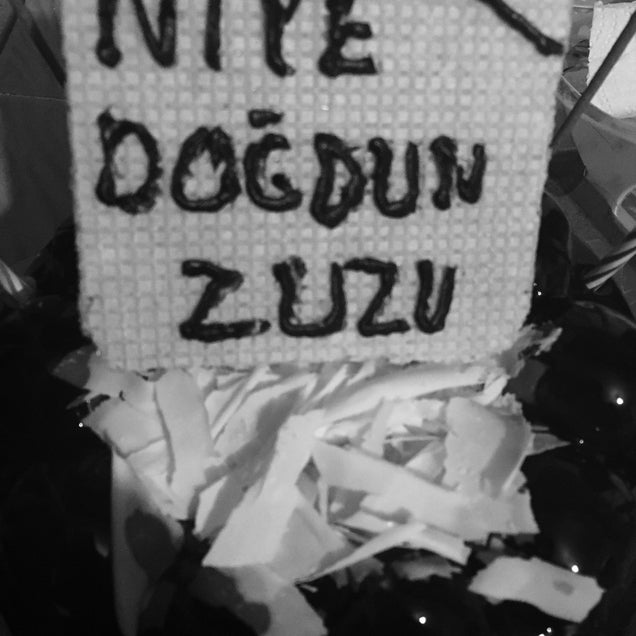 NİYE
DOĞDUN
ZUZU